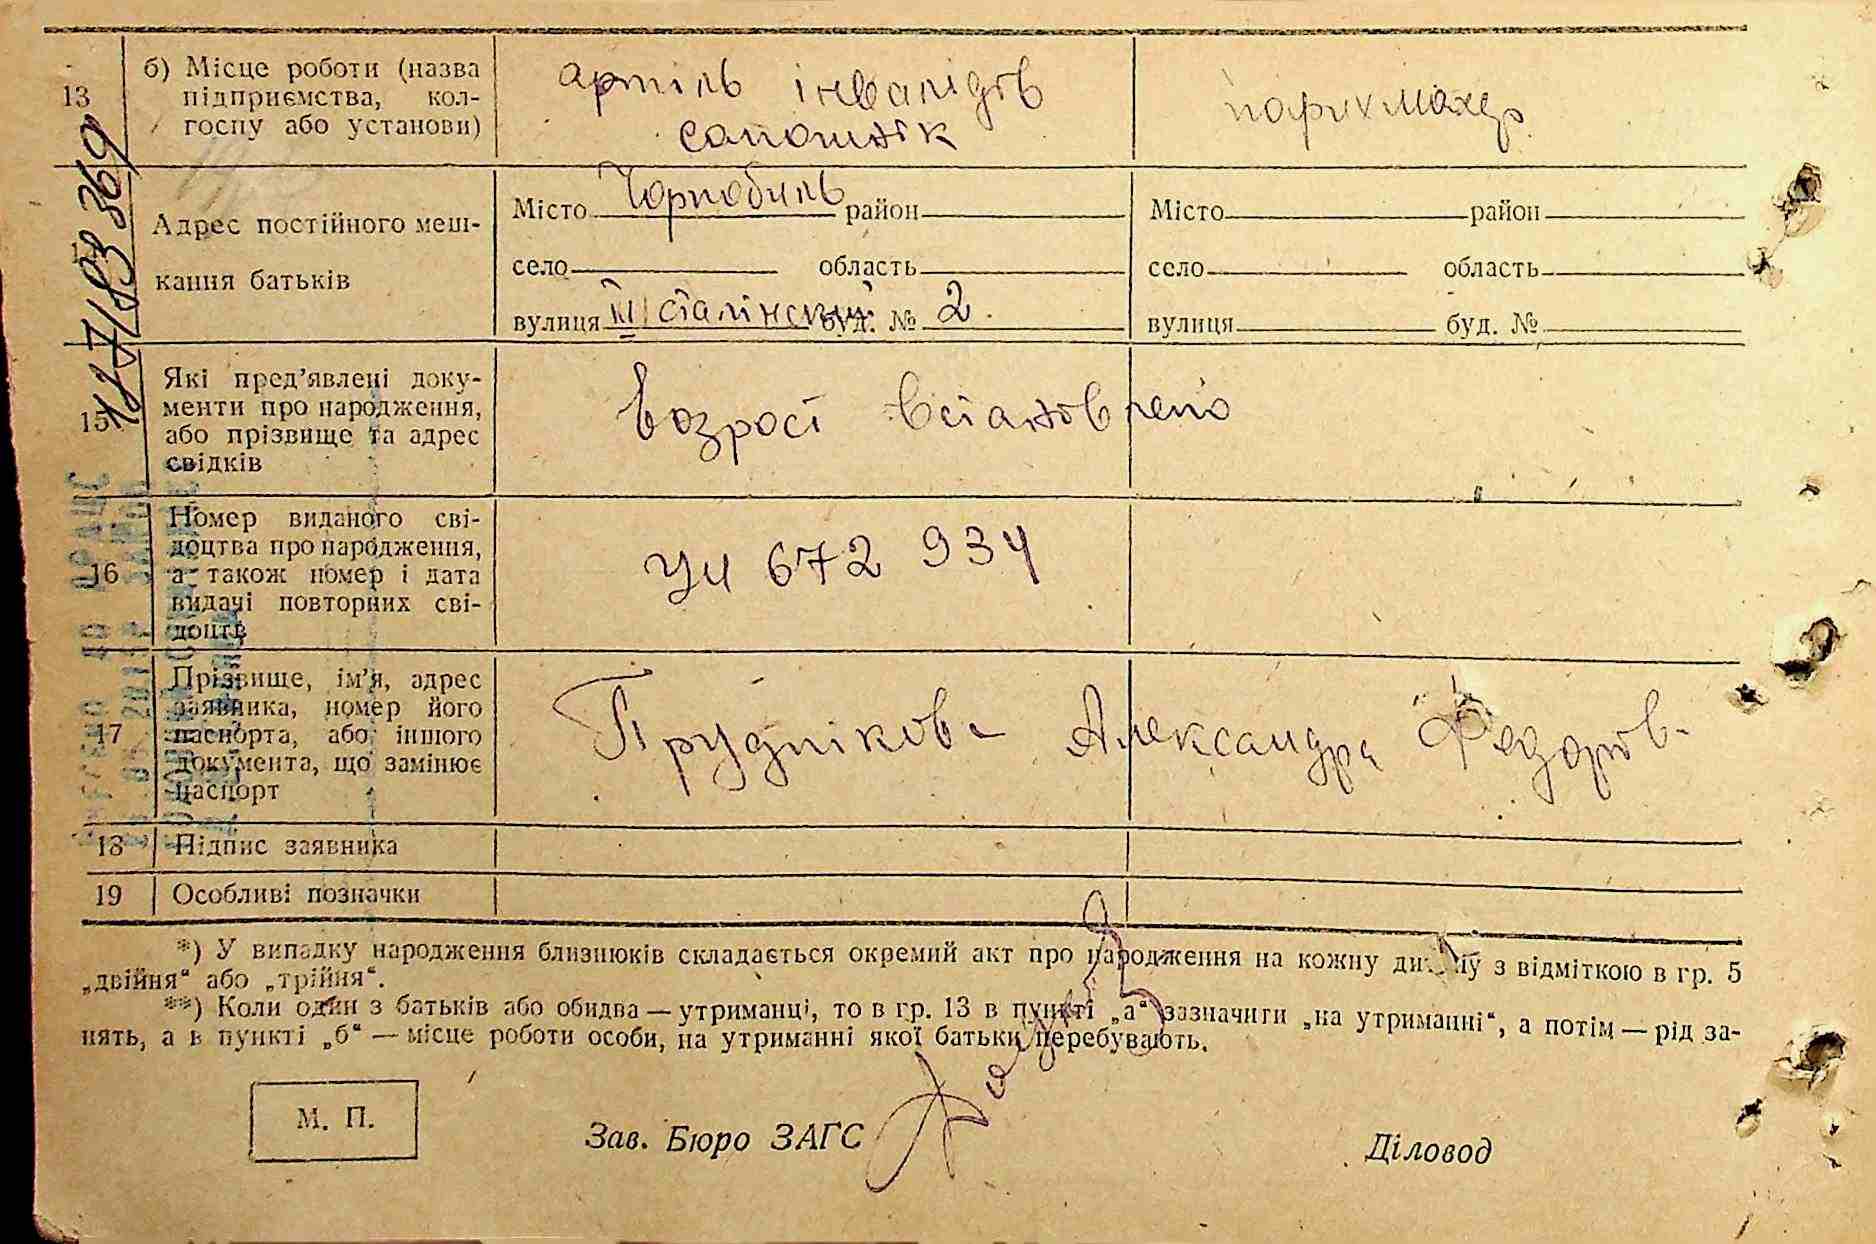 13
б) Місце роботи (назва
підприємства, кол-
госпу або установи)
артіль інвалідів
сапожнік
парихмахер
127/183 369
Адрес постійного меш-
кання батьків
Місто Чорнобиль район
село область
вулиця III сталінський буд. № 2
Місто район
село область
вулиця буд. №
15
Які пред’явлені доку-
менти про народження,
або прізвище та адрес
свідків
возрост встановлено
16
Номер виданого сві-
доцтва про народження,
а також номер і дата
видачі повторних сві-
доцтв
УИ 672 934
17
Прізвище, ім’я, адрес
заявника, номер його
паспорта, або іншого
документа, що замінює
паспорт
Пруднікова Александра Федоров-
18 Підпис заявника
19 Особливі позначки
*) У випадку народження близнюків складається окремий акт про народження на кожну дитину з відміткою в гр. 5
„двійня“ або „трійня“.
**) Коли один з батьків або обидва — утриманці, то в гр. 13 в пункті „а“ зазначити „на утриманні“, а потім — рід за-
нять, а в пункті „б“ — місце роботи особи, на утриманні якої батьки перебувають.
М. П.
Зав. Бюро ЗАГС
Діловод